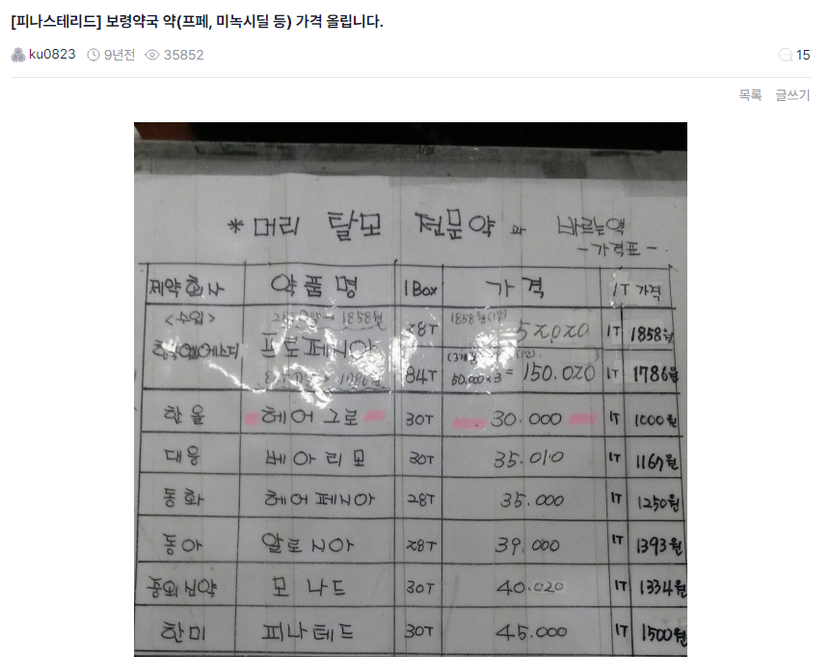 [피나스테리드] 보령약국 약(프페, 미녹시딜 등) 가격 올립니다.
ku0823 9년전 35852 15
목록 글쓰기
* 머리 탈모 전문약 과 바르는액
- 가격표 -
제약회사 약품명 1Box 가격 1T 가격
<수입> 프로페시아 28T 1858원 52,020 1T 1858원
84T (3개월) 50.000x3= 150.020 1T 1786원
한올 헤어그로 30T 30.000 1T 1000원
대웅 베아리모 30T 35.010 1T 1167원
동화 헤어페시아 28T 35.000 1T 1250원
동아 알로시아 28T 39.000 1T 1393원
중외신약 모나드 30T 40.020 1T 1334원
한미 피나테드 30T 45.000 1T 1500원